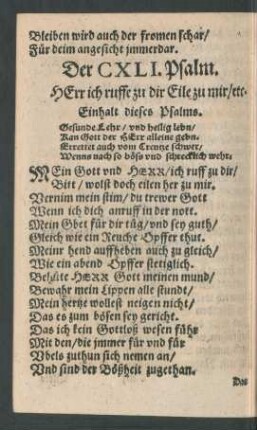 Bleiben wird auch der fromen schar/
Für deim angesicht jmmerdar.
Der CXLI. Psalm.
HErr ich ruffe zu dir Eile zu mir/etc.
Einhalt dieses Psalms.
Gesunde Lehr/ vnd heilig lebn/
Kan Gott der HErr alleine gebn.
Errettet auch vom Creutze schwer/
Wenns nach so bös vnd schrecklich wehr.
MEin Gott vnd HERR/ich ruff zu dir/
Bitt/ wolst doch eilen her zu mir.
Vernim mein stim/du trewer Gott
Wenn ich dich anruff in der nott.
Mein Gbet für dir tüg/vnd sey guth/
Gleich wie ein Reuche Opffer thut.
Meinr hend auffheben auch zu gleich/
Wie ein abend Opffer stetiglich.
Behüte HERR Gott meinen mund/
Bewahr mein Lippen alle stundt/
Mein hertze wollest neigen nicht/
Das es zum bösen sey gericht.
Das ich kein Gottloß wesen führ
Mit den/die jmmer für vnd für
Vbels zuthun sich nemen an/
Vnd sind der Bößheit zugethan.
Das